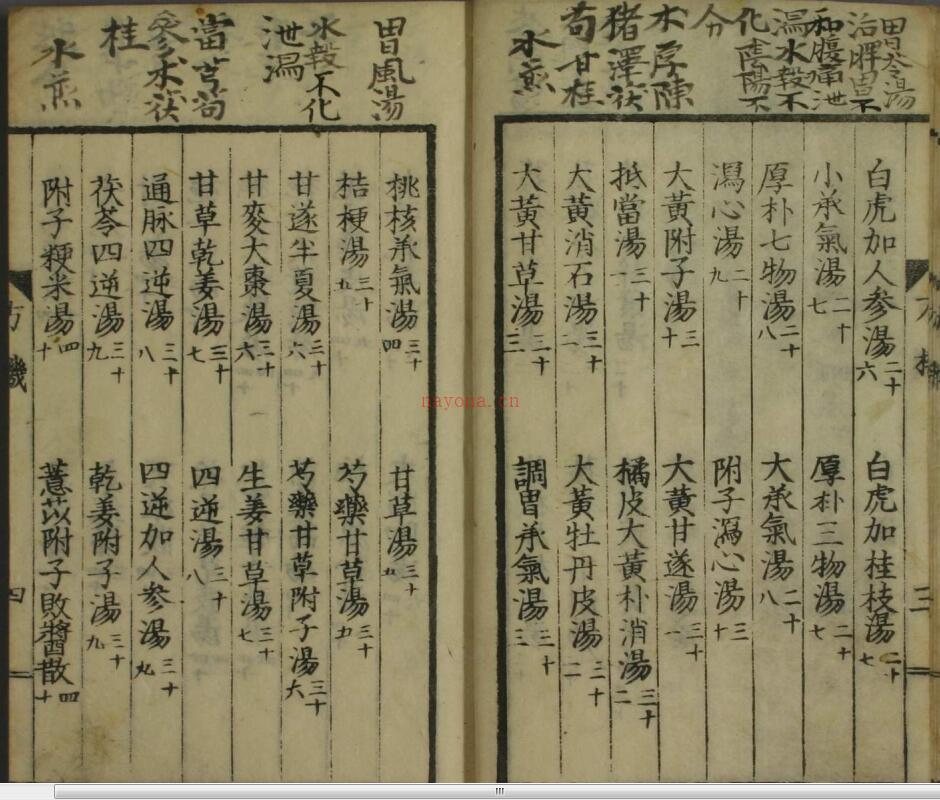 胃苓湯
治脾胃不
和腹痛泄
瀉水穀不
化陰陽不
分
朮厚陳
猪澤茯
芍甘桂
水煎
白虎加人參湯二十六 白虎加桂枝湯二十七
小承氣湯二十七 厚朴三物湯二十七
厚朴七物湯二十八 大承氣湯二十八
瀉心湯二十九 附子瀉心湯三十
大黃附子湯三十 大黃甘遂湯三十一
抵當湯三十一 橘皮大黃朴消湯三十二
大黃消石湯三十二 大黃牡丹皮湯三十二
大黃甘草湯三十三 調胃承氣湯三十三
三
胃風湯
水穀不化
泄瀉
當芎芍
參朮茯
桂
水煎
桃核承氣湯三十四 甘草湯三十五
桔梗湯三十五 芍藥甘草湯三十五
甘遂半夏湯三十六 芍藥甘草附子湯三十六
甘麥大棗湯三十六 生姜甘草湯三十七
甘草乾姜湯三十七 四逆湯三十八
通脉四逆湯三十八 四逆加人參湯三十九
茯苓四逆湯三十九 乾姜附子湯三十九
附子粳米湯四十 薏苡附子敗醬散四十
方機
四
nayona.cn